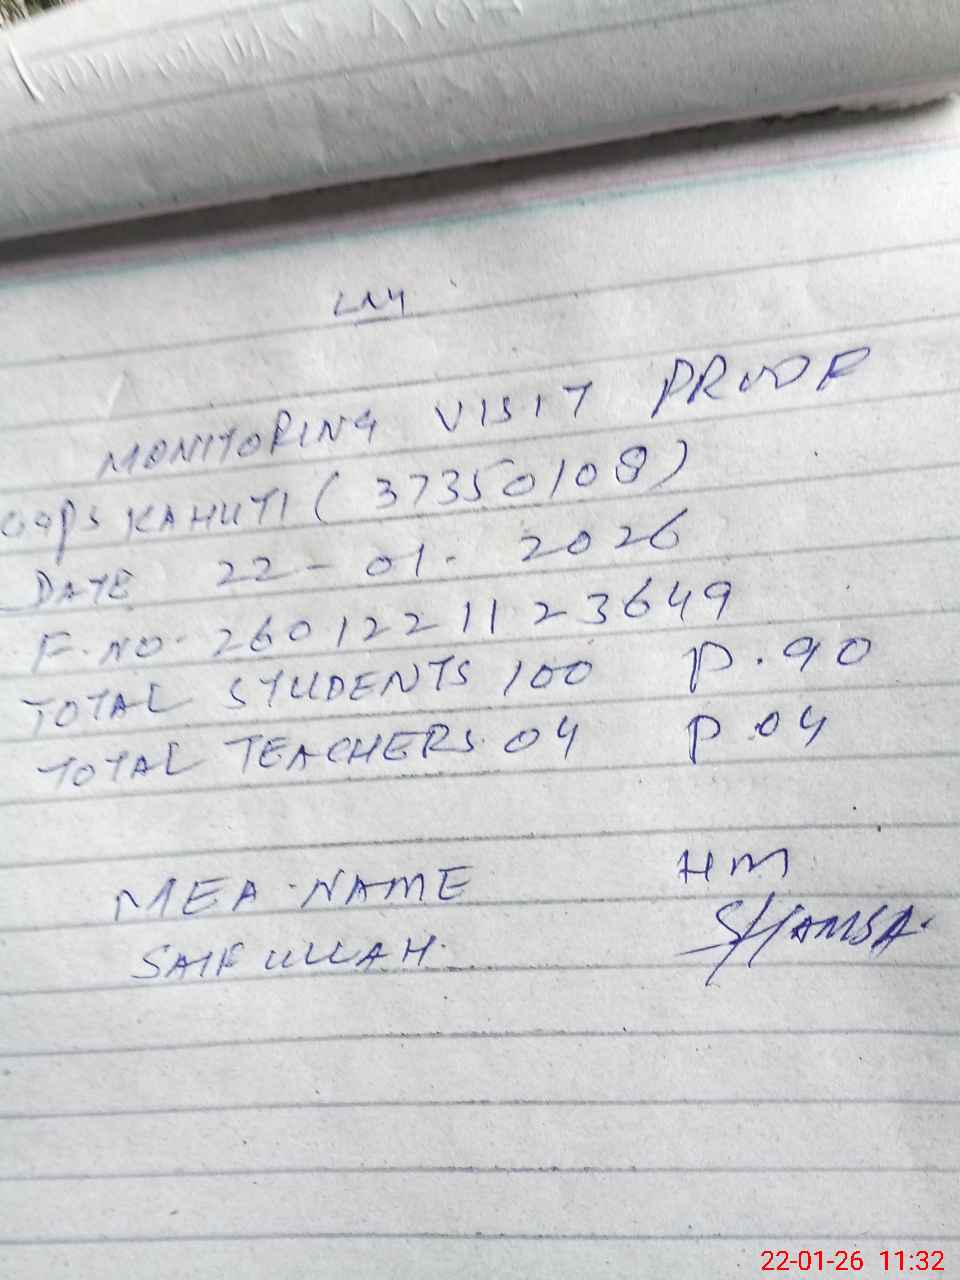 LNY
MONITORING VISIT PROOF
GGPS KAHUTI (37350108)
DATE 22-01-2026
F.NO. 2601221123649
TOTAL STUDENTS 100 P.90
TOTAL TEACHERS 04 P.04
MEA NAME HM
SAIFULLAH. SHAMSA.
22-01-26 11:32